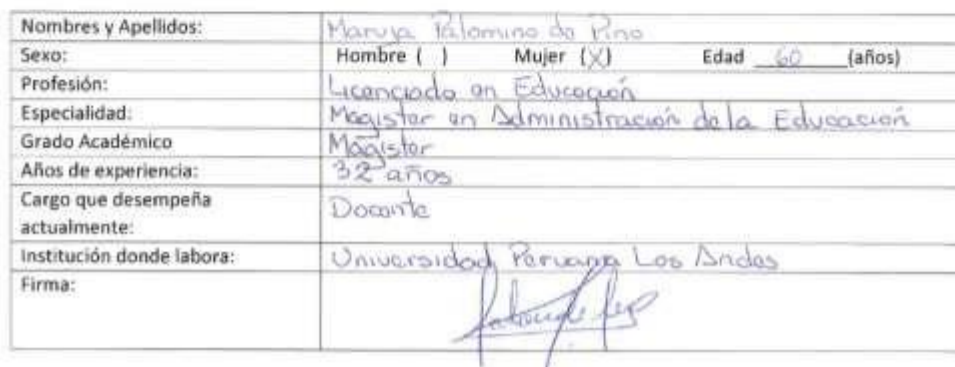 Nombres y Apellidos: Maruja Palomino de Pino
Sexo: Hombre ( ) Mujer (X) Edad 60 (años)
Profesión: Licenciada en Educación
Especialidad: Magister en Administración de la Educación
Grado Académico Magister
Años de experiencia: 32 años
Cargo que desempeña Docente
actualmente:
Institución donde labora: Universidad Peruana Los Andes
Firma: